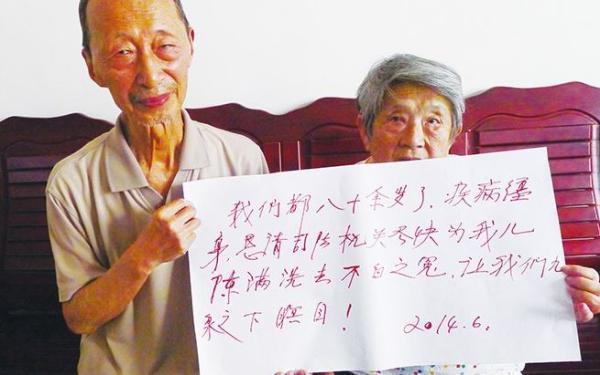 我们都八十余岁了、疾病缠
身恳请司法机关尽快为我儿
陈满洗去不白之冤、让我们九
泉之下瞑目！ 2014.6.